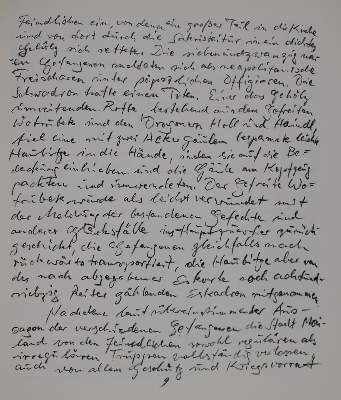 Feindlichen ein, von denen ein großer Teil in die Kirche
und von dort durch die Sakristei in ein dichtes
Gehölz sich rettete. Die siebenundzwanzig
Gefangenen meldeten sich als neapolitanische
Freischaren unter päpstlichen Offizieren. Die
Schwadron hatte einen Toten. Eine das Gehölz
umreitende Rotte, bestehend aus dem Gefreiten
Wotrubek und den Dragonern Holl und Haindl,
fiel eine mit zwei Ackergäulen bespannte leichte
Haubitze in die Hände, indem sie auf die Be-
deckung einhieben und die Gäule am Kopfzeug
packten und umwendeten. Der Gefreite Wo-
trubek wurde als leicht verwundet mit
der Meldung der bestandenen Gefechte und
anderer Glücksfälle ins Hauptquartier zurück
geschickt, die Gefangenen gleichfalls nach
rückwärts transportiert, die Haubitze aber von
der nach abgegebener Eskorte noch achtund-
siebzig Reiter zählenden Eskadron mitgenommen.
Nachdem laut übereinstimmender Aus-
sagen der verschiedenen Gefangenen die Stadt Mai-
land von den Feindlichen sowohl regulären als
irregulären Truppen vollständig verlassen,
auch von allem Geschütz und Kriegsvorrat
9